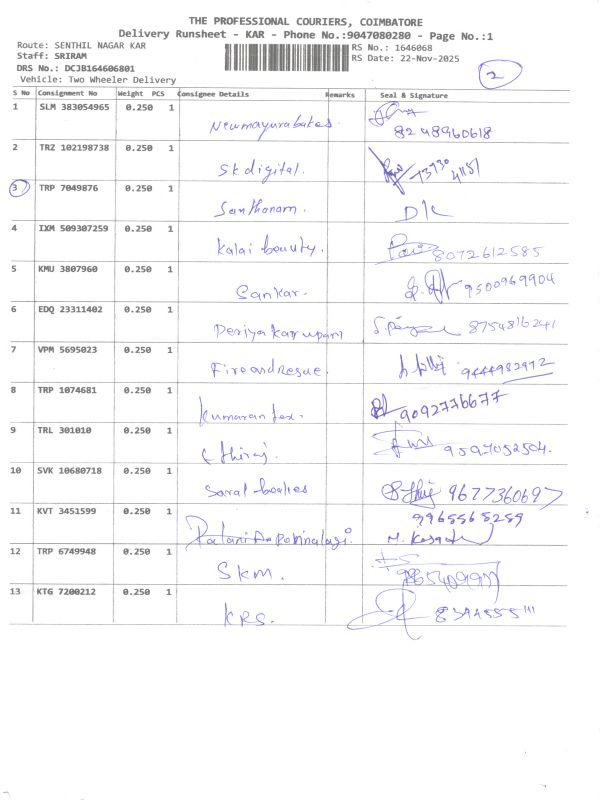 THE PROFESSIONAL COURIERS, COIMBATORE
Delivery Runsheet - KAR - Phone No.:9047080280 - Page No.:1
Route: SENTHIL NAGAR KAR
Staff: SRIRAM
DRS No.: DCJB164606801
Vehicle: Two Wheeler Delivery
RS No.: 1646068
RS Date: 22-Nov-2025
2
S No Consignment No Weight PCS Consignee Details Remarks Seal & Signature
1 SLM 383054965 0.250 1
Newmayurabakes 8248960618
2 TRZ 102198738 0.250 1
Sk digital. 73730 41151
3 TRP 7049876 0.250 1
Santhanam. D/c
4 IXM 509307259 0.250 1
Kalai beauty. 8072612585
5 KMU 3807960 0.250 1
Sankar. 9500969904
6 EDQ 23311402 0.250 1
Periya Karupan 8754816241
7 VPM 5695023 0.250 1
Fireandresue. 9444982992
8 TRP 1074681 0.250 1
Kumaran tex. 9092776677
9 TRL 301010 0.250 1
Ethiraj 9597052504.
10 SVK 10680718 0.250 1
Saral 9677360697
11 KVT 3451599 0.250 1
9965565259
12 TRP 6749948 0.250 1
SKM.
13 KTG 7200212 0.250 1
KRS. 8344555111